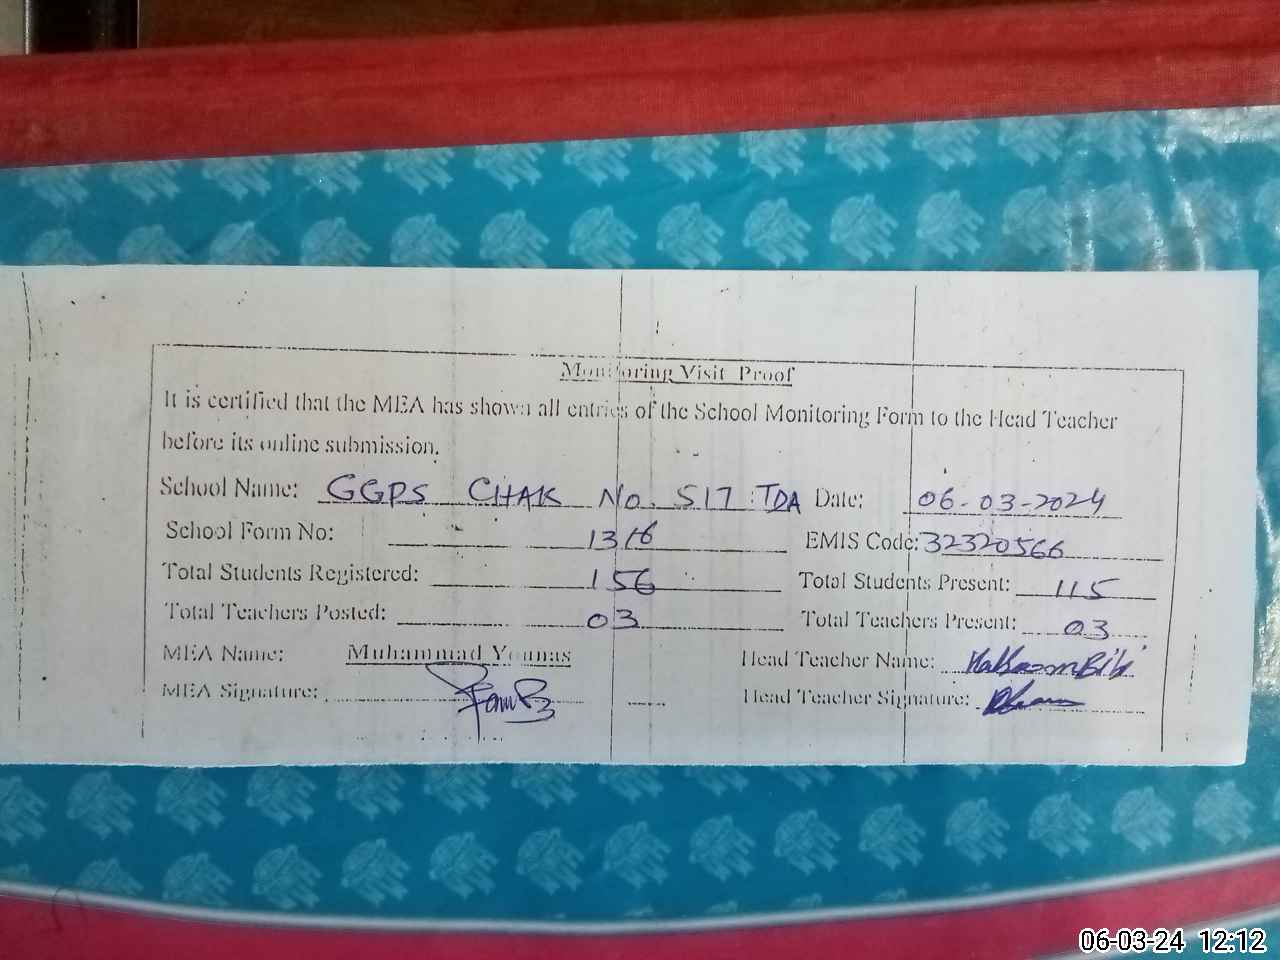 Monitoring Visit Proof
It is certified that the MEA has shown all entries of the School Monitoring Form to the Head Teacher
before its online submission.
School Name: GGPS CHAK No. 517 TDA Date: 06-03-2024
School Form No: 1316 EMIS Code: 32320566
Total Students Registered: 156 Total Students Present: 115
Total Teachers Posted: 03 Total Teachers Present: 03
MEA Name: Muhammad Younas Head Teacher Name: Bibi
MEA Signature: Head Teacher Signature:
06-03-24 12:12